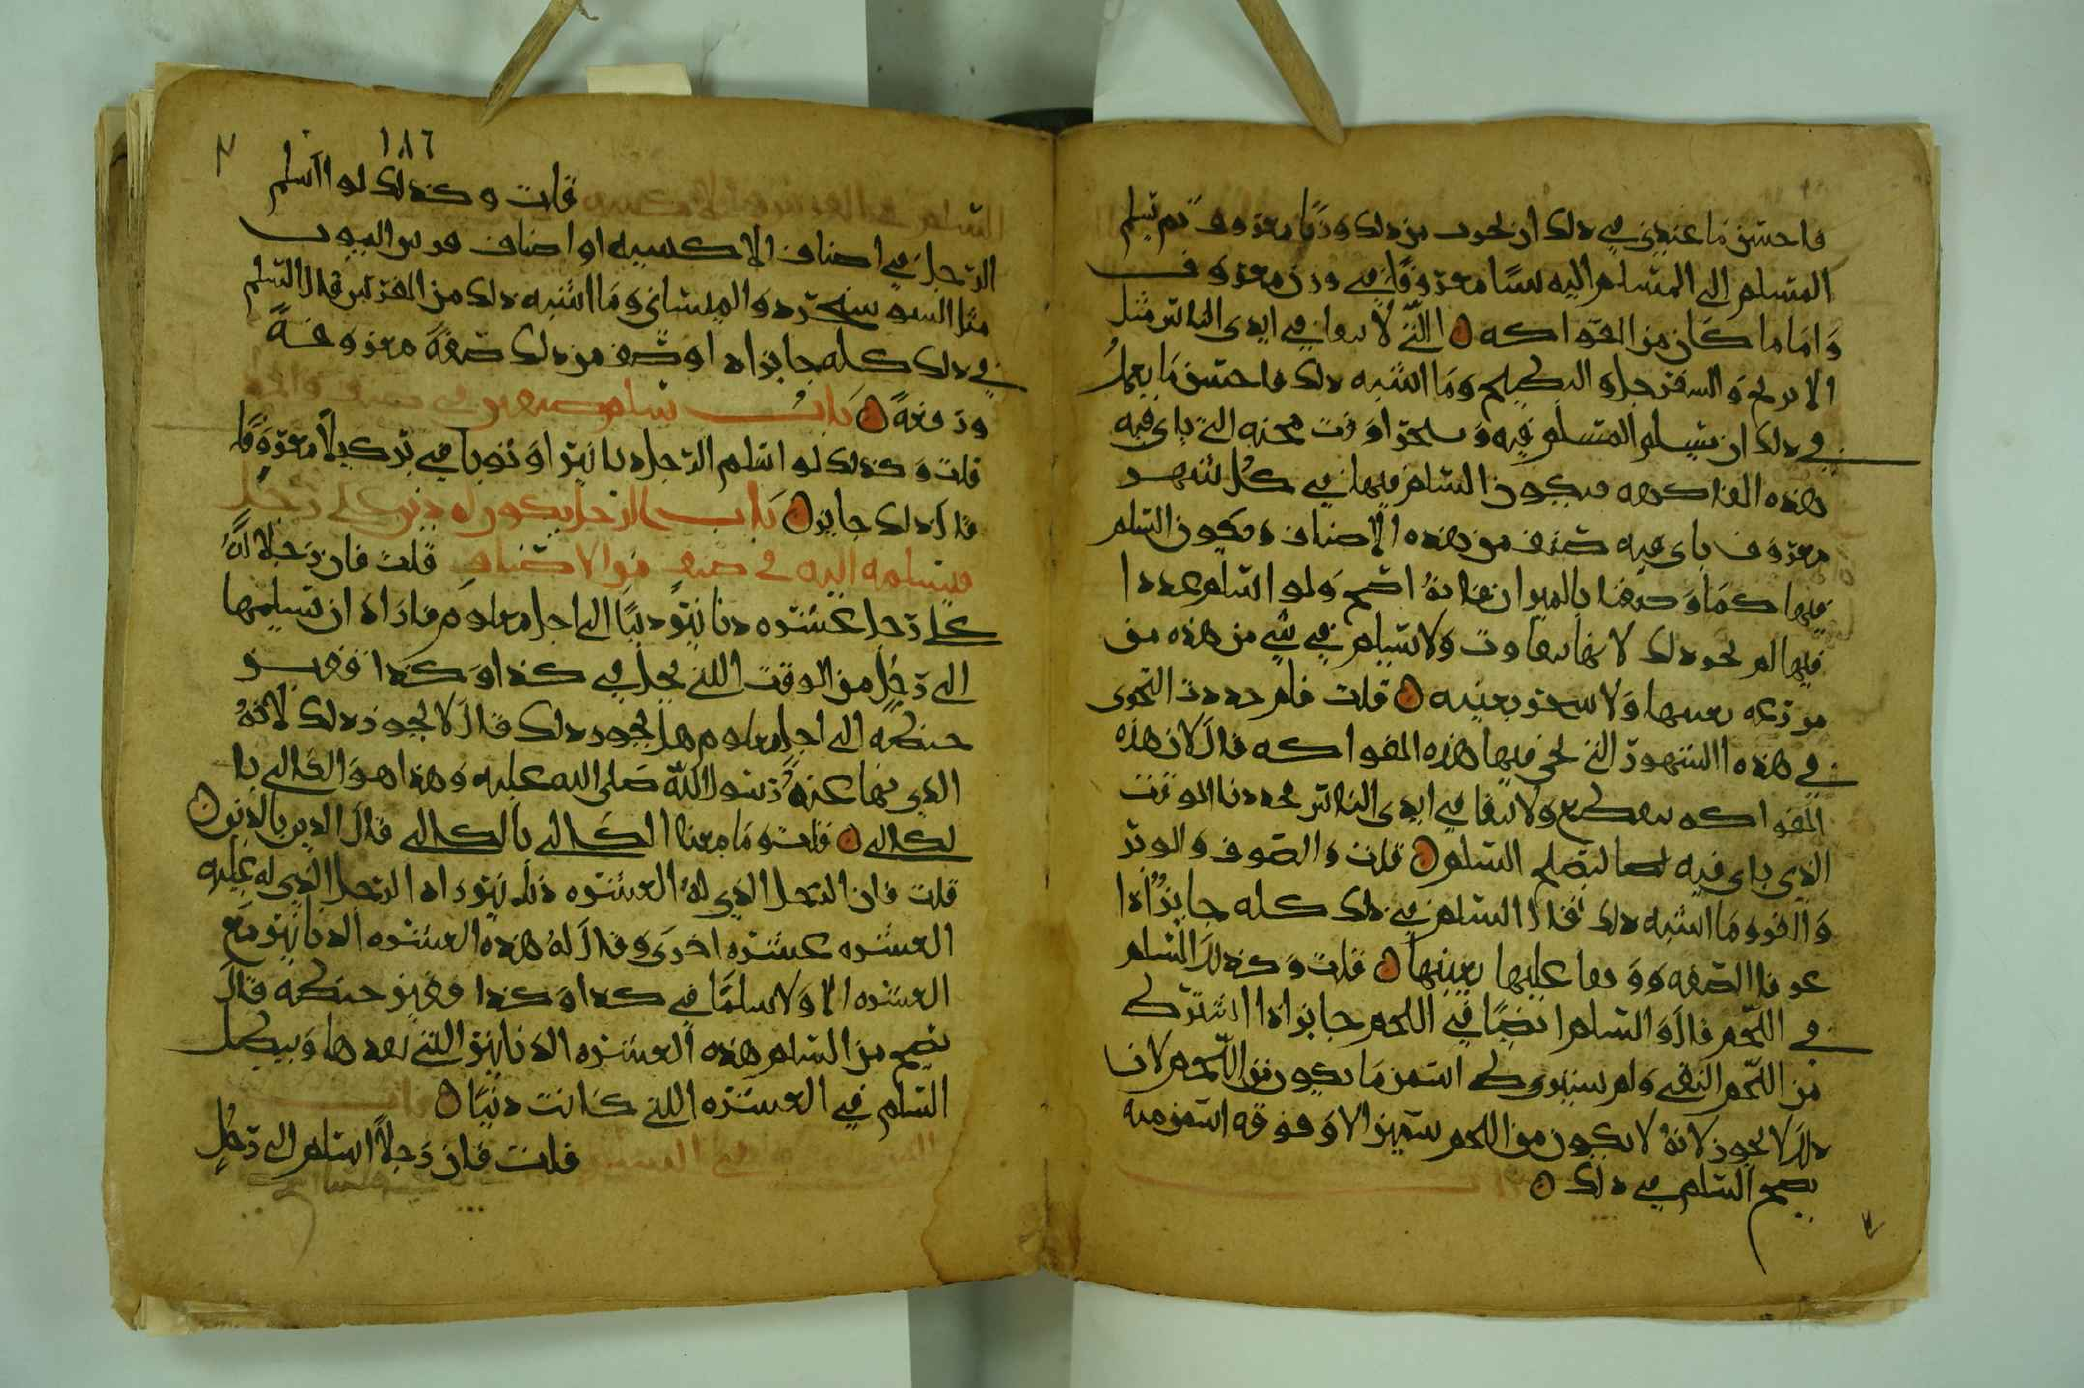 فاحسن ما عندي في ذلك ان يحرف من ذلك وزنا معروف ثم يسلم
المسلم الى المسلم اليه سنا معروفا في وزن معروف
واما ما كان من الفواكه التي لا تبقا في ايدي الناس مثل
الاترنج والسفرجل والبطيخ وما اشبه ذلك فاحسن ما يعمل
في ذلك ان يسلم المسلم فيه ويستحق اوقت مجيه التي ياتي فيه
هذه الفاكهه فيكون السلم فيها في كل شهر
معروف ياتي فيه صنف من هذه الاصناف ويكون السلم
فيها كما وصفنا بالميزان فانه اصح ولو اسلم عددا
فيها لم يجز ذلك لانها تتفاوت ولا يسلم في شي من هذه من
مزرعه بعينها ولا شجر بعينه قلت فلم حددت التحري
في هذه الشهور التي تجي فيها هذه الفواكه قال لان هذه
الفواكه تنقطع ولا تبقا في ايدي الناس فحددنا الوقت
الذي ياتي فيه لها ليصلح السلم قلت والصوف والوبر
والفرو وما اشبه ذلك فقال السلم في ذلك كله جايز اذا
عرفنا الصفه ووقفا عليها بعينها قلت وكذلك السلم
في اللحم قال والسلم ايضا في اللحم جايز اذا اشترط
من اللحم النقي ولم يشترط اسمن ما يكون من اللحم لان
ذلك لا يجوز لانه لا يكون من اللحم سمين الا وفوقه اسمن منه
يصح السلم في ذلك
١٨٦
قلت وكذلك لو اسلم
الرجل في اصناف الاكسيه او اصناف فرش البيوت
مثل السوسنجرد والميساني وما اشبه ذلك من الفرش قال السلم
في ذلك كله جايز اذا وصف من ذلك صفة معروفة
ورقعة باب
قلت وكذلك لو اسلم الرجل دنانير او ثوبا في بر كيلا معروفا
قال ذلك جايز باب الرجل يكون له دين على رجل
فيسلمه اليه في صنف من الاصناف قلت فان رجلا له
على رجل عشره دنانير دينا الى اجل معلوم فاراد ان يسلمها
الى رجل من الوقت الذي يحل في كذا وكذا قفيز
حنطه الى اجل معلوم هل يجوز ذلك قال لا يجوز ذلك لانه
الذي نها عنه رسول الله صلى الله عليه وهذا هو الكالي با
لكالي قلت وما معنا الكالي بالكالي قال الدين بالدين
قلت فان الرجل الذي له العشره دنانير زاد الرجل الذي له عليه
العشره عشره اخرى وقال له هذه العشره الدنانير مع
العشره الاولا سلما في كذا وكذا قفيز حنطه قال
يصح من السلم هذه العشره الدنانير التي نقدها ويبطل
السلم في العشره التي كانت دينا
قلت فان رجلا اسلم الى رجل